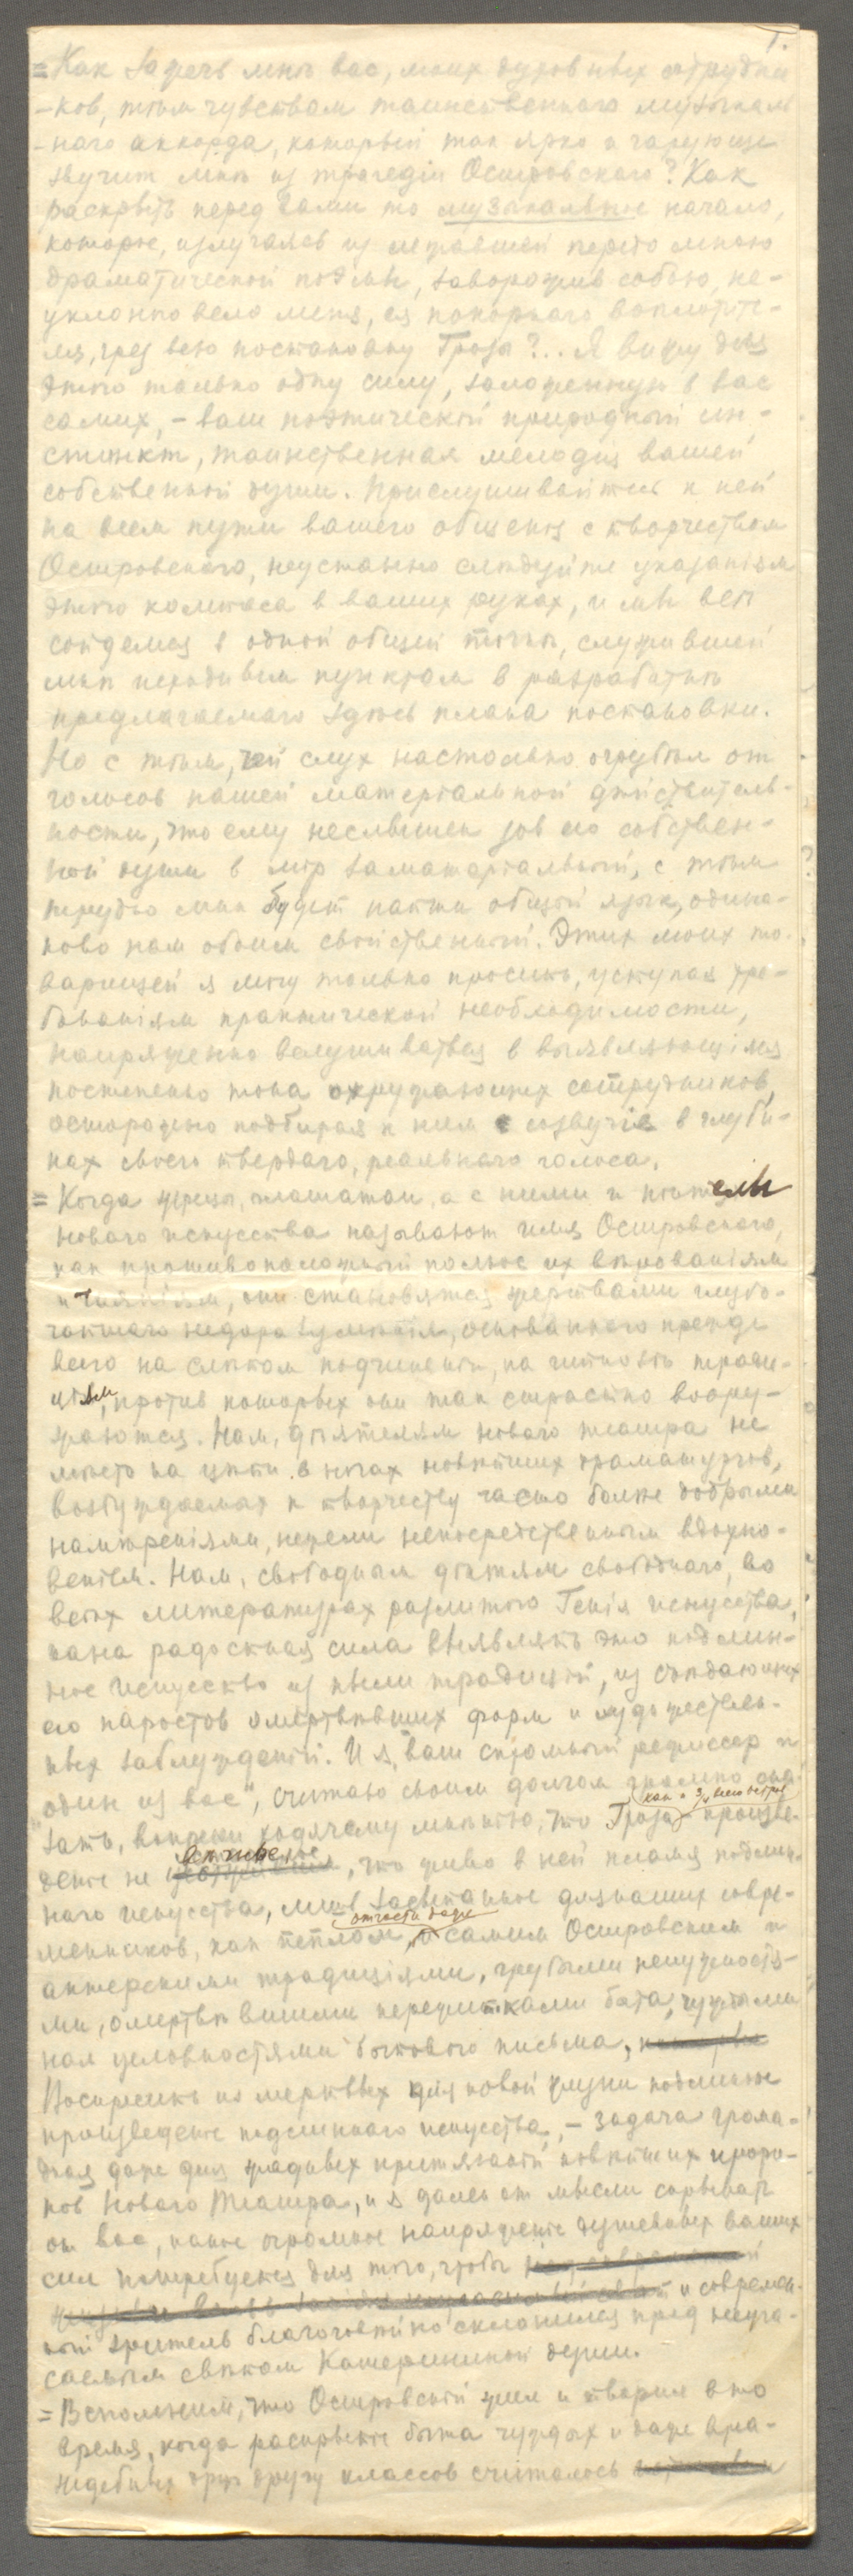 1.
= Как зажечь мнѣ вас, моих духовных сотрудни
- ков, тѣм чувством таинственнаго музыкаль
- наго аккорда, который так ярко и чарующе
звучит мнѣ из трагедіи Островскаго? Как
раскрыть перед вами то музыкальное начало,
которое, излучаясь из лежавшей передо мною
драматической поэмы, заворожив собою, не-
уклонно вело меня, ея покорнаго воплотите-
ля, чрез всю постановку Грозы?.. Я вижу для
этого только одну силу, заложенную в вас
самих, – ваш поэтическій природный ин-
стинкт, таинственная мелодія вашей
собственной души. Прислушивайтесь к ней
на всем пути вашего общенія с творчеством
Островскаго, неустанно слѣдуйте указаніям
этого компаса в ваших руках, и мы всѣ
сойдемся в одной общей точкѣ, служившей
мнѣ исходным пунктом в разработкѣ
предлагаемаго здѣсь плана постановки.
Но с тѣм, чей слух настолько огрубѣл от
голосов нашей матеріальной дѣйствитель-
ности, что ему неслышен зов его собствен-
ной души в мір заматеріальный, с тѣм
трудно мнѣ будет найти общій язык, одина-
ково нам обоим свойственный. Этих моих то-
варищей я могу только просить, уступая тре-
бованіям практической необходимости,
напряженно вслушиваться в выявляющіяся
постепенно тона окружающих сотрудников,
осторожно подбирая к ним созвучія в глуби-
нах своего твердаго, реальнаго голоса.
= Когда жрецы, глашатаи, а с ними и цѣнители
новаго искусства называют имя Островскаго,
как противоположный полюс их вѣрованіям
и чаяніям, они становятся жертвами глубо-
чайшаго недоразумѣнія, основаннаго прежде
всего на слѣпом подчиненіи, на гипнозѣ тради-
ціям, против которых они так страстно воору-
жаются. Нам, дѣятелям новаго театра не
мѣсто на цѣпи в ногах новѣйших драматургов,
возбуждаемых к творчеству часто болѣе добрыми
намѣреніями, нежели непосредственным вдохно-
веніем. Нам, свободным дѣтям свободнаго, во
всѣх литературах разлитого Генія искусства,
дана радостная сила выявлять это подлин-
ное искусство из пыли традицій, из съѣдающих
его наростов омертвѣвших форм и художествен-
ных заблужденій. И я, ваш скромный режиссер и
„один из вас“, считаю своим долгом громко ска-
зать, вопреки ходячему мнѣнію, что Гроза как и весь остров произве-
деніе не отжившее, что живо в ней пламя подлин-
наго искусства, лишь засыпанное для наших совре-
менников, как пеплом, отчасти даже самим Островским и
актерскими традиціями, грубыми ненужностя-
ми, омертвѣвшими пережитками быта, чуждыми
нам условностями бытового письма.
Воскресить из мертвых для новой жизни подлинное
произведеніе подлиннаго искусства, – задача грома-
дная даже для жадных притязаній новѣйших проро-
ков Новаго Театра, и я далек от мысли скрывать
от вас, какое огромное напряженіе душевных ваших
сил потребуется для того, чтобы
и современ-
ный зритель благоговѣйно склонился пред неуга-
саемым свѣтом Катерининой души.
= Вспомним, что Островскій жил и творил в то
время, когда раскрытіе быта чуждых и даже вра-
ждебных друг другу классов считалось